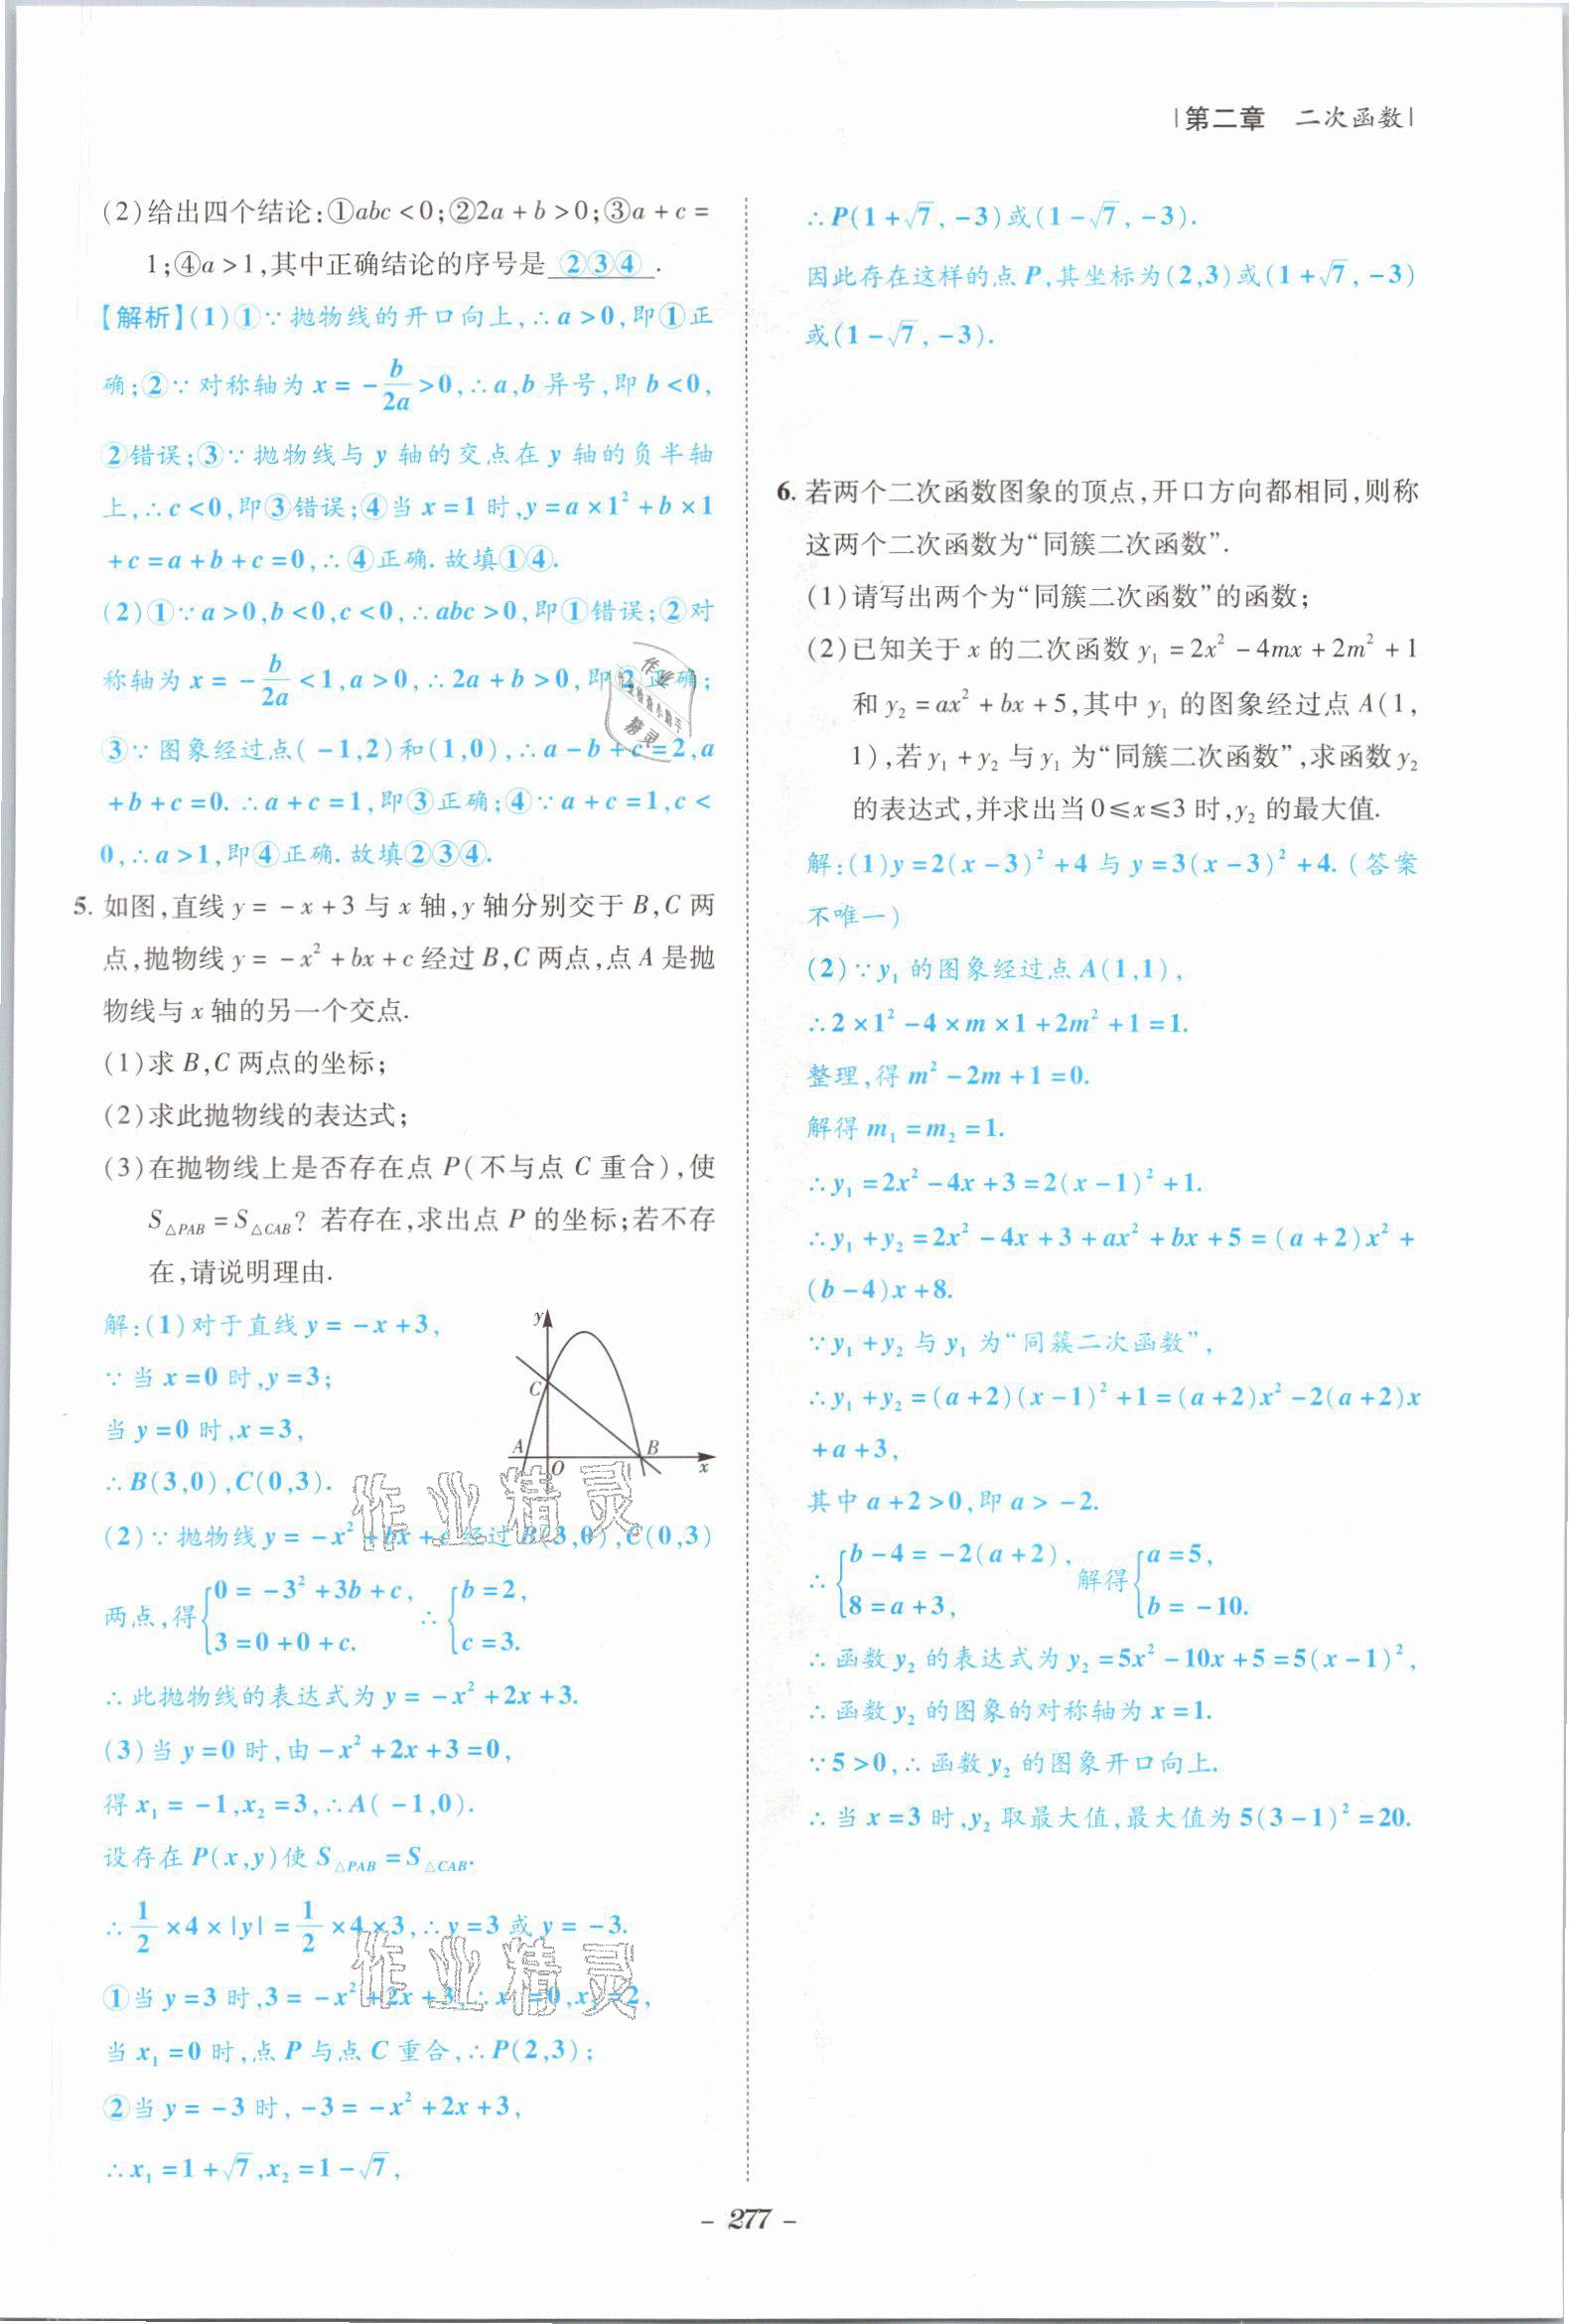 |第二章　二次函数|
(2)给出四个结论:①abc<0;②2a+b>0;③a+c=
1;④a>1,其中正确结论的序号是 ②③④ .
【解析】(1)①∵抛物线的开口向上,∴a>0,即①正
确;②∵对称轴为 x=-b/2a>0,∴a,b 异号,即 b<0,
②错误;③∵抛物线与 y 轴的交点在 y 轴的负半轴
上,∴c<0,即③错误;④当 x=1 时,y=a×1²+b×1
+c=a+b+c=0,∴④正确.故填①④.
(2)①∵a>0,b<0,c<0,∴abc>0,即①错误;②对
称轴为 x=-b/2a<1,a>0,∴2a+b>0,即②正确;
③∵图象经过点(-1,2)和(1,0),∴a-b+c=2,a
+b+c=0.∴a+c=1,即③正确;④∵a+c=1,c<
0,∴a>1,即④正确.故填②③④.
5. 如图,直线 y=-x+3 与 x 轴,y 轴分别交于 B,C 两
点,抛物线 y=-x²+bx+c 经过 B,C 两点,点 A 是抛
物线与 x 轴的另一个交点.
(1)求 B,C 两点的坐标;
(2)求此抛物线的表达式;
(3)在抛物线上是否存在点 P(不与点 C 重合),使
S△PAB=S△CAB?若存在,求出点 P 的坐标;若不存
在,请说明理由.
解:(1)对于直线 y=-x+3,
∵当 x=0 时,y=3;
当 y=0 时,x=3,
∴B(3,0),C(0,3).
y
C
A
O
B
x
(2)∵抛物线 y=-x²+bx+c 经过 B(3,0),C(0,3)
两点,得{0=-3²+3b+c, 3=0+0+c. ∴{b=2, c=3.
∴此抛物线的表达式为 y=-x²+2x+3.
(3)当 y=0 时,由-x²+2x+3=0,
得 x₁=-1,x₂=3,∴A(-1,0).
设存在 P(x,y)使 S△PAB=S△CAB.
∴1/2×4×|y|=1/2×4×3,∴y=3 或 y=-3.
①当 y=3 时,3=-x²+2x+3,∴x₁=0,x₂=2,
当 x₁=0 时,点 P 与点 C 重合,∴P(2,3);
②当 y=-3 时,-3=-x²+2x+3,
∴x₁=1+√7,x₂=1-√7,
∴P(1+√7,-3)或(1-√7,-3).
因此存在这样的点 P,其坐标为(2,3)或(1+√7,-3)
或(1-√7,-3).
6. 若两个二次函数图象的顶点,开口方向都相同,则称
这两个二次函数为“同簇二次函数”.
(1)请写出两个为“同簇二次函数”的函数;
(2)已知关于 x 的二次函数 y₁=2x²-4mx+2m²+1
和 y₂=ax²+bx+5,其中 y₁ 的图象经过点 A(1,
1),若 y₁+y₂ 与 y₁ 为“同簇二次函数”,求函数 y₂
的表达式,并求出当 0≤x≤3 时,y₂ 的最大值.
解:(1)y=2(x-3)²+4 与 y=3(x-3)²+4.(答案
不唯一)
(2)∵y₁ 的图象经过点 A(1,1),
∴2×1²-4×m×1+2m²+1=1.
整理,得 m²-2m+1=0.
解得 m₁=m₂=1.
∴y₁=2x²-4x+3=2(x-1)²+1.
∴y₁+y₂=2x²-4x+3+ax²+bx+5=(a+2)x²+
(b-4)x+8.
∵y₁+y₂ 与 y₁ 为“同簇二次函数”,
∴y₁+y₂=(a+2)(x-1)²+1=(a+2)x²-2(a+2)x
+a+3,
其中 a+2>0,即 a>-2.
∴{b-4=-2(a+2), 8=a+3, 解得{a=5, b=-10.
∴函数 y₂ 的表达式为 y₂=5x²-10x+5=5(x-1)²,
∴函数 y₂ 的图象的对称轴为 x=1.
∵5>0,∴函数 y₂ 的图象开口向上.
∴当 x=3 时,y₂ 取最大值,最大值为 5(3-1)²=20.
作业精灵
作业精灵
- 277 -